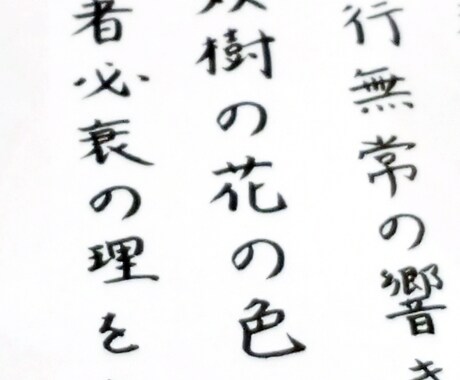 行無常の響き
樹の花の色
者必衰の理を